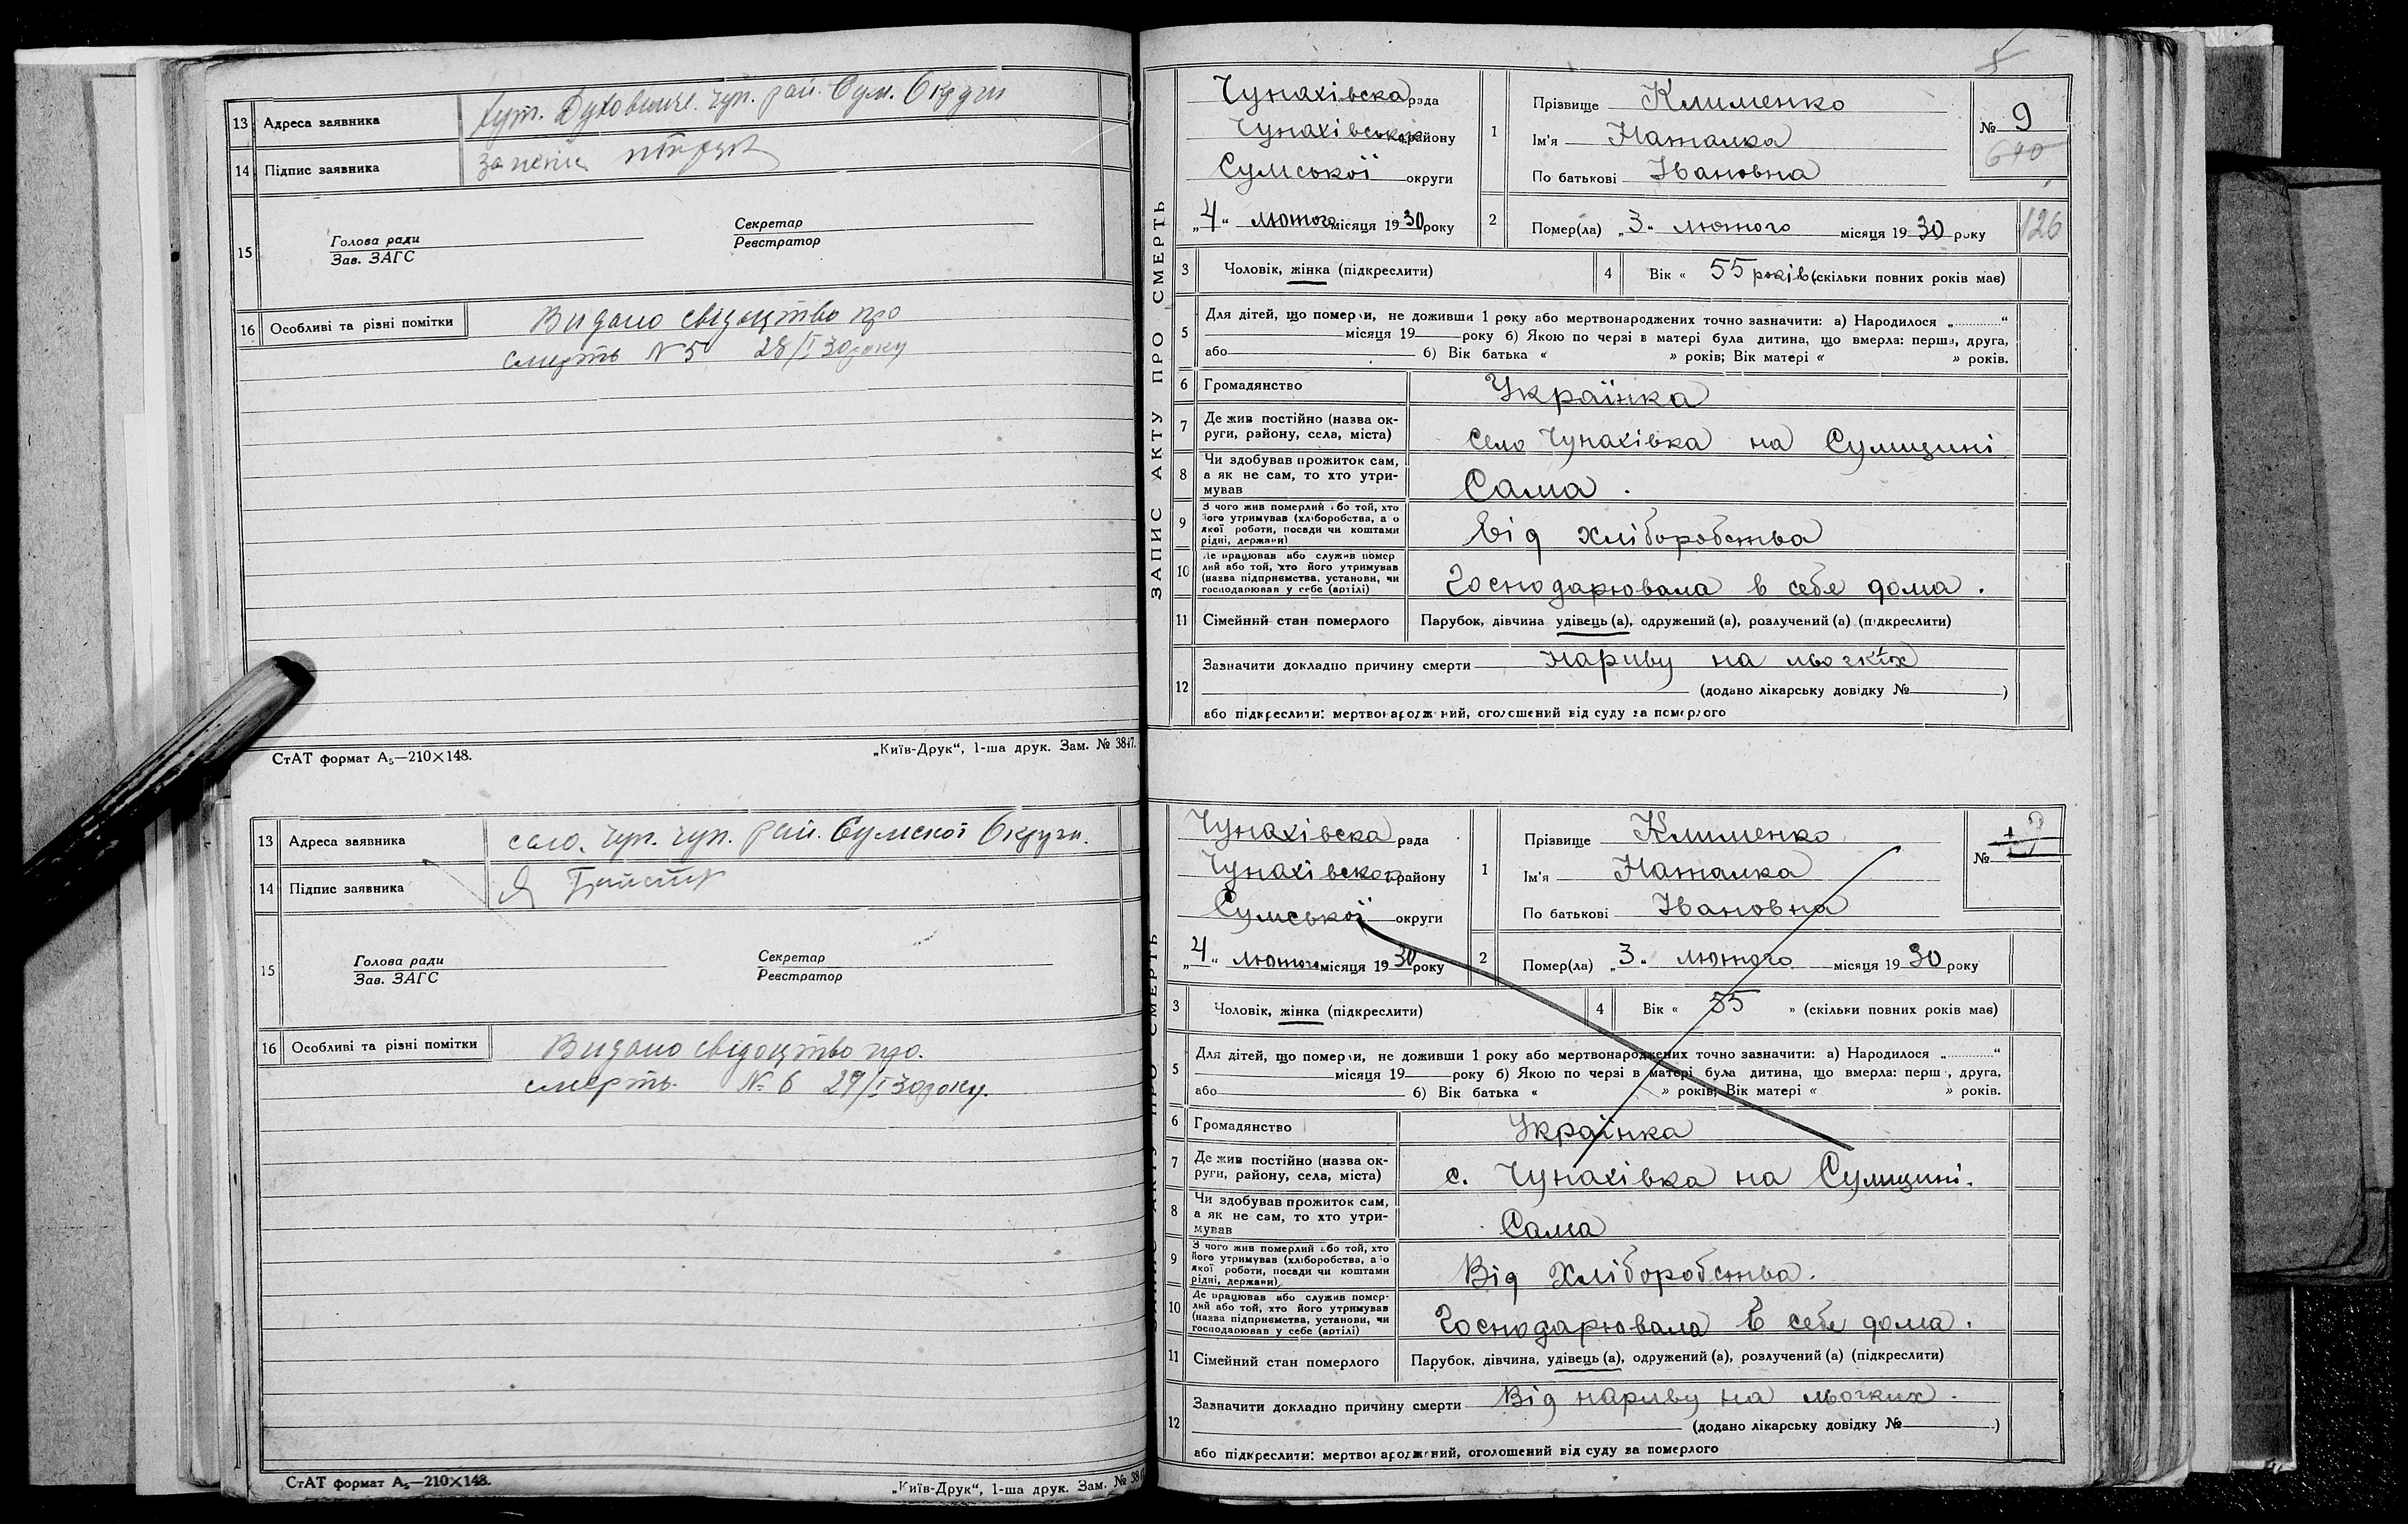 13 Адреса заявника хут. Духовничe. Чуп. рай. Сум. Округи
14 Підпис заявника
15 Голова ради Секретар
Зав. ЗАГС Реєстратор
16 Особливі та різні помітки Видано свідоцтво про
смерть N 5 28/I 30 року
СтАТ формат А5—210×148. „Київ-Друк“, 1-ша друк. Зам. № 3847.
13 Адреса заявника село. Чуп. Чуп. рай. Сумскої Округи.
14 Підпис заявника Я
15 Голова ради Секретар
Зав. ЗАГС Реєстратор
16 Особливі та різні помітки Видано свідоцтво про.
смерть. № 6 29/I 30 року.
СтАТ формат А5—210×148. „Київ-Друк“, 1-ша друк. Зам. № 3847
5
ЗАПИС АКТУ ПРО СМЕРТЬ
Чупахівска рада
Чупахівського району
Сумської округи
„4“ лютого місяця 1930 року
1 Прізвище Клименко
Ім'я Наталка
По батькові Івановна
№ 9
640
2 Помер(ла) „3“ лютого місяця 1930 року
126
3 Чоловік, жінка (підкреслити) 4 Вік « 55 років (скільки повних років має)
5 Для дітей, що померли, не доживши 1 року або мертвонароджених точно зазначити: а) Народилося „...........“
місяця 19 року б) Якою по черзі в матері була дитина, що вмерла: перша, друга,
або б) Вік батька « » років; Вік матері « » років.
6 Громадянство Українка
7 Де жив постійно (назва ок-
руги, району, села, міста) Село Чупахівка на Сумщині
8 Чи здобував прожиток сам,
а як не сам, то хто утри-
мував Сама.
9 З чого жив померлий або той, хто
його утримував (хліборобства, а о
якої роботи, посади чи коштами
рідні, держави) Від хліборобства
10 Де працював або служив помер
лий або той, хто його утримував
(назва підприємства, установи, чи
господарював у себе (артілі) Господарювала в себе дома.
11 Сімейний стан померлого Парубок, дівчина удівець (а), одружений (а), розлучений (а) (підкреслити)
12 Зазначити докладно причину смерти Нариву на льогкіх
(додано лікарську довідку № )
або підкреслити: мертвонароджений, оголошений від суду за померлого
ЗАПИС АКТУ ПРО СМЕРТЬ
Чупахівска рада
Чупахівского району
Сумської округи
„4“ лютого місяця 1930 року
1 Прізвище Клименко
Ім'я Наталка
По батькові Івановна
№
2 Помер(ла) „3“ лютого місяця 1930 року
3 Чоловік, жінка (підкреслити) 4 Вік « 55 » (скільки повних років має)
5 Для дітей, що померли, не доживши 1 року або мертвонароджених точно зазначити: а) Народилося „...........“
місяця 19 року б) Якою по черзі в матері була дитина, що вмерла: перш , друга,
або б) Вік батька « » років; Вік матері « » років.
6 Громадянство Українка
7 Де жив постійно (назва ок-
руги, району, села, міста) с. Чупахівка на Сумщині.
8 Чи здобував прожиток сам,
а як не сам, то хто утри-
мував Сама
9 З чого жив померлий або той, хто
його утримував (хліборобства, а о
якої роботи, посади чи коштами
рідні, держави) Від Хліборобства.
10 Де працював або служив помер-
лий або той, хто його утримував
(назва підприємства, установи, чи
господарював у себе (артілі) Господарювала в себе дома.
11 Сімейний стан померлого Парубок, дівчина, удівець (а), одружений (а), розлучений (а) (підкреслити)
12 Зазначити докладно причину смерти Від нариву на льогких.
(додано лікарську довідку № )
або підкреслити: мертвонароджений, оголошений від суду за померлого